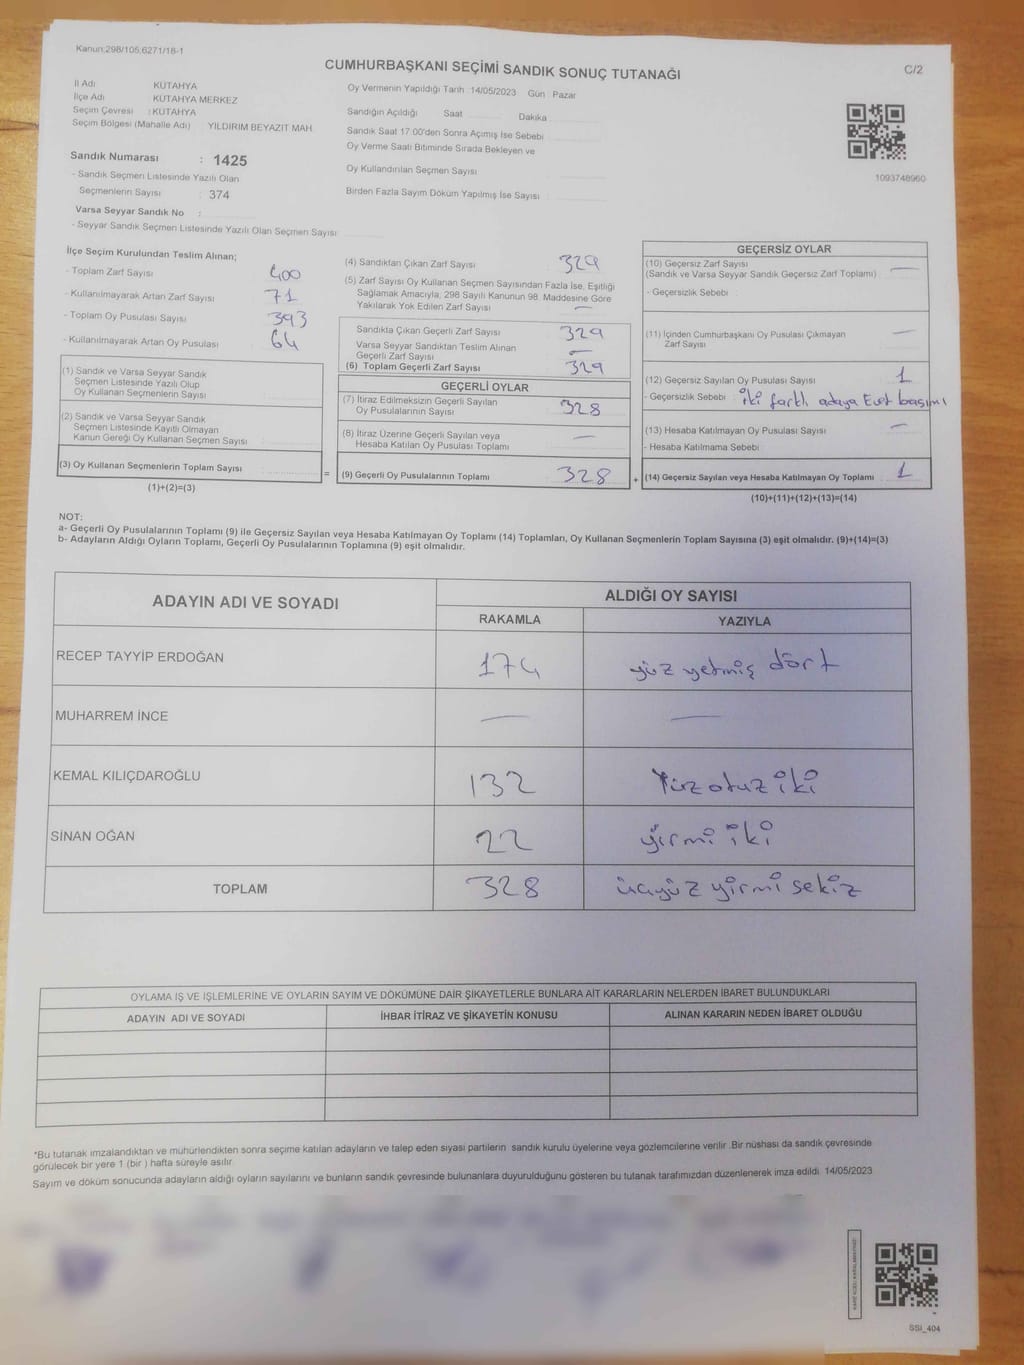 Kanun:298/105,6271/18-1
CUMHURBAŞKANI SEÇİMİ SANDIK SONUÇ TUTANAĞI
C/2
İl Adı KÜTAHYA
İlçe Adı KÜTAHYA MERKEZ
Seçim Çevresi : KÜTAHYA
Seçim Bölgesi (Mahalle Adı) YILDIRIM BEYAZIT MAH.
Oy Vermenin Yapıldığı Tarih :14/05/2023 Gün : Pazar
Sandığın Açıldığı Saat Dakika
Sandık Saat 17:00'den Sonra Açımış İse Sebebi
Oy Verme Saati Bitiminde Sırada Bekleyen ve
Oy Kullandırılan Seçmen Sayısı
Birden Fazla Sayım Döküm Yapılmış İse Sayısı
1093748960
Sandık Numarası : 1425
- Sandık Seçmen Listesinde Yazılı Olan
Seçmenlerin Sayısı : 374
Varsa Seyyar Sandık No :
- Seyyar Sandık Seçmen Listesinde Yazılı Olan Seçmen Sayısı
İlçe Seçim Kurulundan Teslim Alınan;
- Toplam Zarf Sayısı 400
- Kullanılmayarak Artan Zarf Sayısı 71
- Toplam Oy Pusulası Sayısı 393
- Kullanılmayarak Artan Oy Pusulası 64
(1) Sandık ve Varsa Seyyar Sandık
Seçmen Listesinde Yazılı Olup
Oy Kullanan Seçmenlerin Sayısı
(2) Sandık ve Varsa Seyyar Sandık
Seçmen Listesinde Kayıtlı Olmayan
Kanun Gereği Oy Kullanan Seçmen Sayısı
(3) Oy Kullanan Seçmenlerin Toplam Sayısı
(1)+(2)=(3)
=
(4) Sandıktan Çıkan Zarf Sayısı 329
(5) Zarf Sayısı Oy Kullanan Seçmen Sayısından Fazla İse, Eşitliği
Sağlamak Amacıyla, 298 Sayılı Kanunun 98. Maddesine Göre
Yakılarak Yok Edilen Zarf Sayısı —
Sandıkta Çıkan Geçerli Zarf Sayısı 329
Varsa Seyyar Sandıktan Teslim Alınan
Geçerli Zarf Sayısı —
(6) Toplam Geçerli Zarf Sayısı 329
GEÇERLİ OYLAR
(7) İtiraz Edilmeksizin Geçerli Sayılan
Oy Pusulalarının Sayısı 328
(8) İtiraz Üzerine Geçerli Sayılan veya
Hesaba Katılan Oy Pusulası Toplamı —
(9) Geçerli Oy Pusulalarının Toplamı 328
+
GEÇERSİZ OYLAR
(10) Geçersiz Zarf Sayısı
(Sandık ve Varsa Seyyar Sandık Geçersiz Zarf Toplamı) —
- Geçersizlik Sebebi :
(11) İçinden Cumhurbaşkanı Oy Pusulası Çıkmayan
Zarf Sayısı —
(12) Geçersiz Sayılan Oy Pusulası Sayısı 1
- Geçersizlik Sebebi : iki farklı adaya Evet basımı
(13) Hesaba Katılmayan Oy Pusulası Sayısı —
- Hesaba Katılmama Sebebi
(14) Geçersiz Sayılan veya Hesaba Katılmayan Oy Toplamı 1
(10)+(11)+(12)+(13)=(14)
NOT:
a- Geçerli Oy Pusulalarının Toplamı (9) ile Geçersiz Sayılan veya Hesaba Katılmayan Oy Toplamı (14) Toplamları, Oy Kullanan Seçmenlerin Toplam Sayısına (3) eşit olmalıdır. (9)+(14)=(3)
b- Adayların Aldığı Oyların Toplamı, Geçerli Oy Pusulalarının Toplamına (9) eşit olmalıdır.
ADAYIN ADI VE SOYADI
ALDIĞI OY SAYISI
RAKAMLA YAZIYLA
RECEP TAYYİP ERDOĞAN 174 yüz yetmiş dört
MUHARREM İNCE — —
KEMAL KILIÇDAROĞLU 132 Yüz otuz iki
SİNAN OĞAN 22 yirmi iki
TOPLAM 328 üçyüz yirmi sekiz
OYLAMA İŞ VE İŞLEMLERİNE VE OYLARIN SAYIM VE DÖKÜMÜNE DAİR ŞİKAYETLERLE BUNLARA AİT KARARLARIN NELERDEN İBARET BULUNDUKLARI
ADAYIN ADI VE SOYADI İHBAR İTİRAZ VE ŞİKAYETİN KONUSU ALINAN KARARIN NEDEN İBARET OLDUĞU
*Bu tutanak imzalandıktan ve mühürlendikten sonra seçime katılan adayların ve talep eden siyasi partilerin sandık kurulu üyelerine veya gözlemcilerine verilir. Bir nüshası da sandık çevresinde
görülecek bir yere 1 (bir ) hafta süreyle asılır.
Sayım ve döküm sonucunda adayların aldığı oyların sayılarını ve bunların sandık çevresinde bulunanlara duyurulduğunu gösteren bu tutanak tarafımızdan düzenlenerek imza edildi. 14/05/2023
SSİ_404